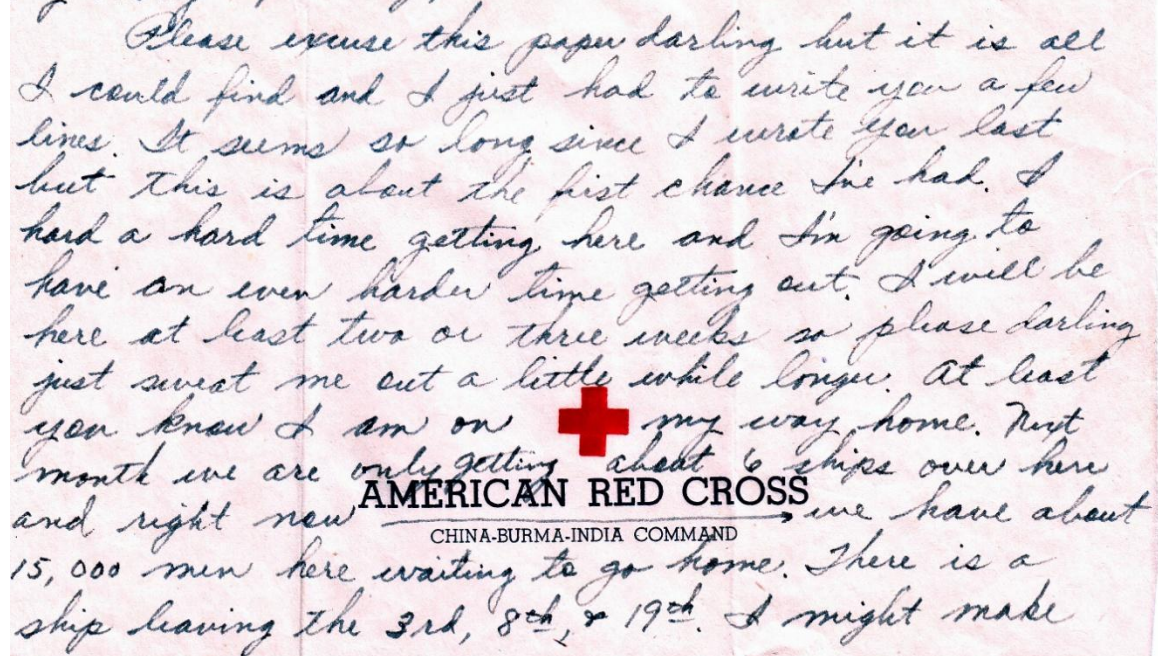 Please excuse this paper darling but it is all
I could find and I just had to write you a few
lines. It seems so long since I wrote you last
but this is about the first chance I've had. I
had a hard time getting here and I'm going to
have an even harder time getting out. I will be
here at least two or three weeks so please darling
just sweat me out a little while longer. At least
you know I am on my way home. Next
month we are only getting about 6 ships over here
AMERICAN RED CROSS
and right now we have about
CHINA-BURMA-INDIA COMMAND
15,000 men here waiting to go home. There is a
ship leaving the 3rd, 8th, & 19th. I might make